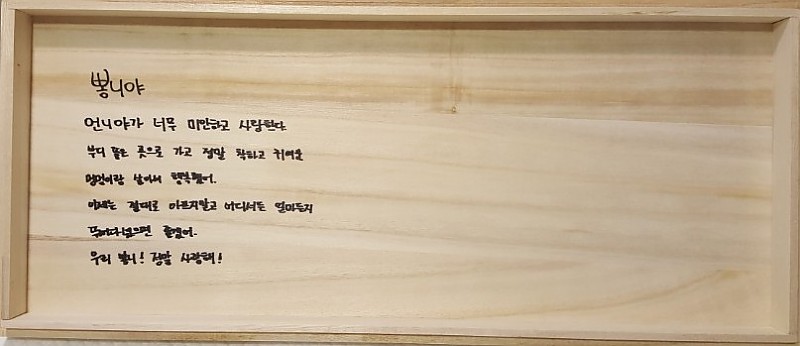 뽕니야
언니야가 너무 미안하고 사랑한다
부디 좋은 곳으로 가고 정말 착하고 귀여운
멍멍이랑 살아서 행복했어.
이제는 절대로 아프지말고 어디서든 얼마든지
뛰어다녔으면 좋겠어.
우리 뽕니! 정말 사랑해!